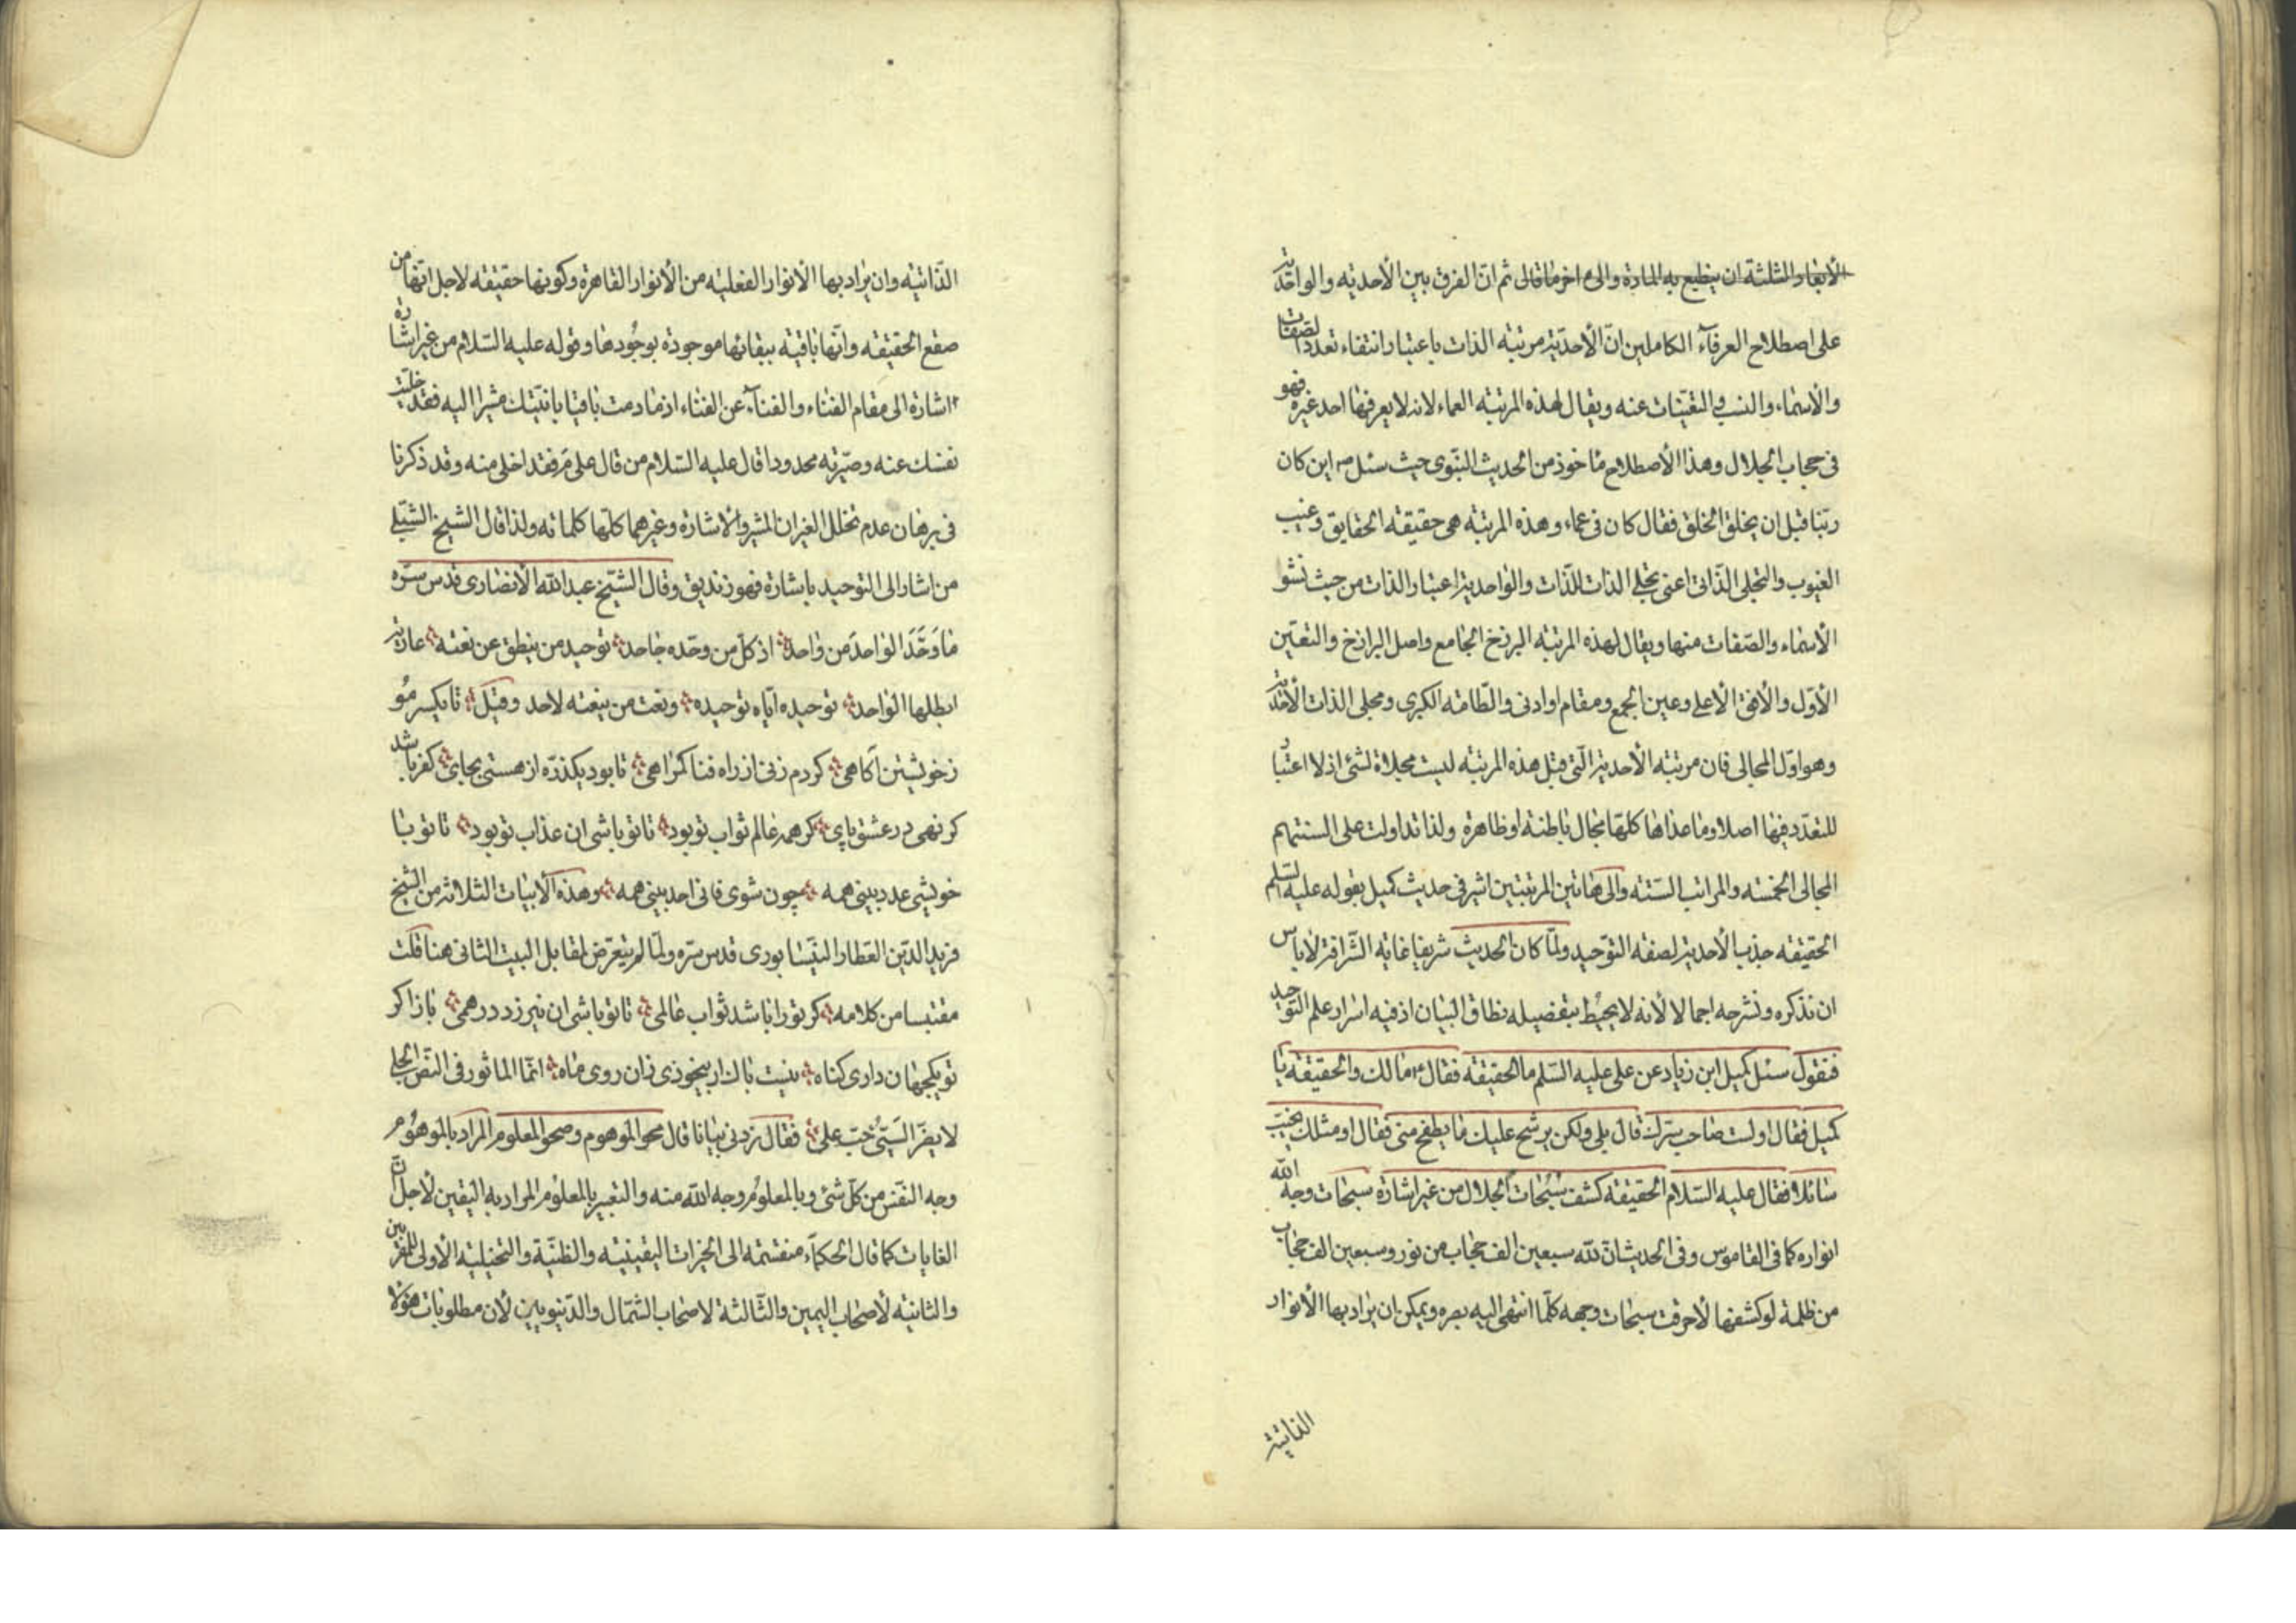 الأبعاد الثلثة ان ينطبع به المادة والى اخر ما قالى ثم انّ الفرق بين الأحديّه والواحديّة
على اصطلاح العرفآء الكاملين انّ الأحديّة مرتبة الذات باعتبار انتفاء تعدد الصّفات
والأسماء والنسب والتعيّنات عنه ويقال لهذه المرتبة العماء لانه لا يعرفها احد غيره فهو
فى حجاب الجلال وهذا الأصطلاح مأخوذ من الحديث النّبوى حيث سئل ص اين كان
ربّنا قبل ان يخلق الخلق فقال كان فى عماء وهذه المرتبة هى حقيقة الحقايق وغيب
الغيوب والتجلى الذّاتى اعنى تجلى الذات للذّات والواحدية اعتبار الذات من حيث نشو
الأسماء والصّفات منها ويقال لهذه المرتبة البرزخ الجامع واصل البرازخ والتعيّن
الأوّل والأفق الأعلى وعين الجمع ومقام اوادنى والطّامة الكبرى ومجلى الذات الأحديّة
وهو اوّل المجالى فان مرتبة الأحدية الّتى قبل هذه المرتبة ليست مجلاة لشئ اذ لا اعتبار
للتعدّد فيها اصلا وما عداها كلّها مجال باطنة او ظاهرة ولذا تداولت على السنتهم
المجالى الخمسة والمراتب السّتة والى هاتين المرتبتين اشير فى حديث كميل بقوله عليه السّلم
الحقيقة جذب الأحدية لصفة التوّحيد ولمّا كان الحديث شريفا غاية الشّرافة لا باس
ان نذكره ونشرحه اجمالا لأنه لا يحيط بتفصيله نطاق البيان اذ فيه اسرار علم التوّحيد
فنقول سئل كميل ابن زياد عن على عليه السّلم ما الحقيقة فقال ع ما لك والحقيقة يا
كميل فقال اولست صاحب سرّك قال بلى ولكن يرشح عليك ما يطفح منى فقال او مثلك يخيّب
سائلا فقال عليه السّلام الحقيقة كشف سُبُحات الجلال من غير اشارة سبحات وجه اللّه
انواره كما فى القاموس وفى الحديث انّ للّه سبعين الف حجاب من نور وسبعين الف حجاب
من ظلمة لو كشفها لأحرقت سبحات وجهه كلّما انتهى اليه بصره ويمكن ان يراد بها الأنوار
الذاتيّة
الذّاتيّة وان يراد بها الأنوار الفعلية من الأنوار القاهرة وكونها حقيقة لاجل انّها من
صقع الحقيقة وانّها باقية ببقائها موجودة بوجُودها وقوله عليه السّلام من غير اشارة
اشارة الى مقام الفناء والفنآء عن الفناء اذ ما دمت باقيا بانيّتك مشيرا اليه فقد خلّيت
نفسك عنه وصيّرته محدودا قال عليه السّلام من قال على مَ فقد اخلى منه وقد ذكرنا
فى برهان عدم تخلل الغير ان المشير والاشارة وغيرهما كلّها كلماته ولذا قال الشيخ الشّبلى
من اشار الى التوحيد باشارة فهو زنديق وقال الشّيخ عبد اللّه الأنصارى قدس سرّه
ما وَحَّدَ الواحدَ من واحد اذ كلّ من وحّده جاحد توحيد من ينطق عن نعته عارية
ابطلها الواحد توحيده ايّاه توحيده ونعت من ينعته لاحد وقيل تا يكسر مُو
زخويشتن آكاهى كر دم زنى از راه فنا كمراهى تا بود يكذرّه از هستى بجاى كفر باشد
كر نهى در عشق پاى كر همه عالم ثواب تو بود تا تو باشى ان عذاب تو بود تا تو با
خويشى عدد بينى همه چون شوى فانى احد بينى همه وهذه الأبيات الثلاثة من الشيخ
فريد الدّين العطار النيّسابورى قدس سرّه ولمّا لم يتعرّض لمقابل البيت الثانى هنا قلت
مقتبسا من كلامه كر تو را باشد ثواب عالمى تا تو باشى ان نيرزد درهمى باز اكر
تو يكجهان دارى كناه نيست باك ار بيخودى زان روى ماه انّما الماثور فى النّص الجلى
لا يضرّ السّيّئ حُبّ على فقال زدنى بيانا قال محو الموهوم وصحو المعلوم المراد بالموهُوم
وجه النفّس من كلّ شئ وبالمعلوُم وجه اللّه منه والتعبير بالمعلوُم المراد به اليقين لأجل انّ
الغايات كما قال الحكمآء منقسمة الى الخيرات اليقينيّة والظنّيّة والتخيلية الأولى للمقرّبين
والثانية لأصحاب اليمين والثّالثة لاصحاب الشّمال والدّنيويين لأن مطلوبات هؤلا